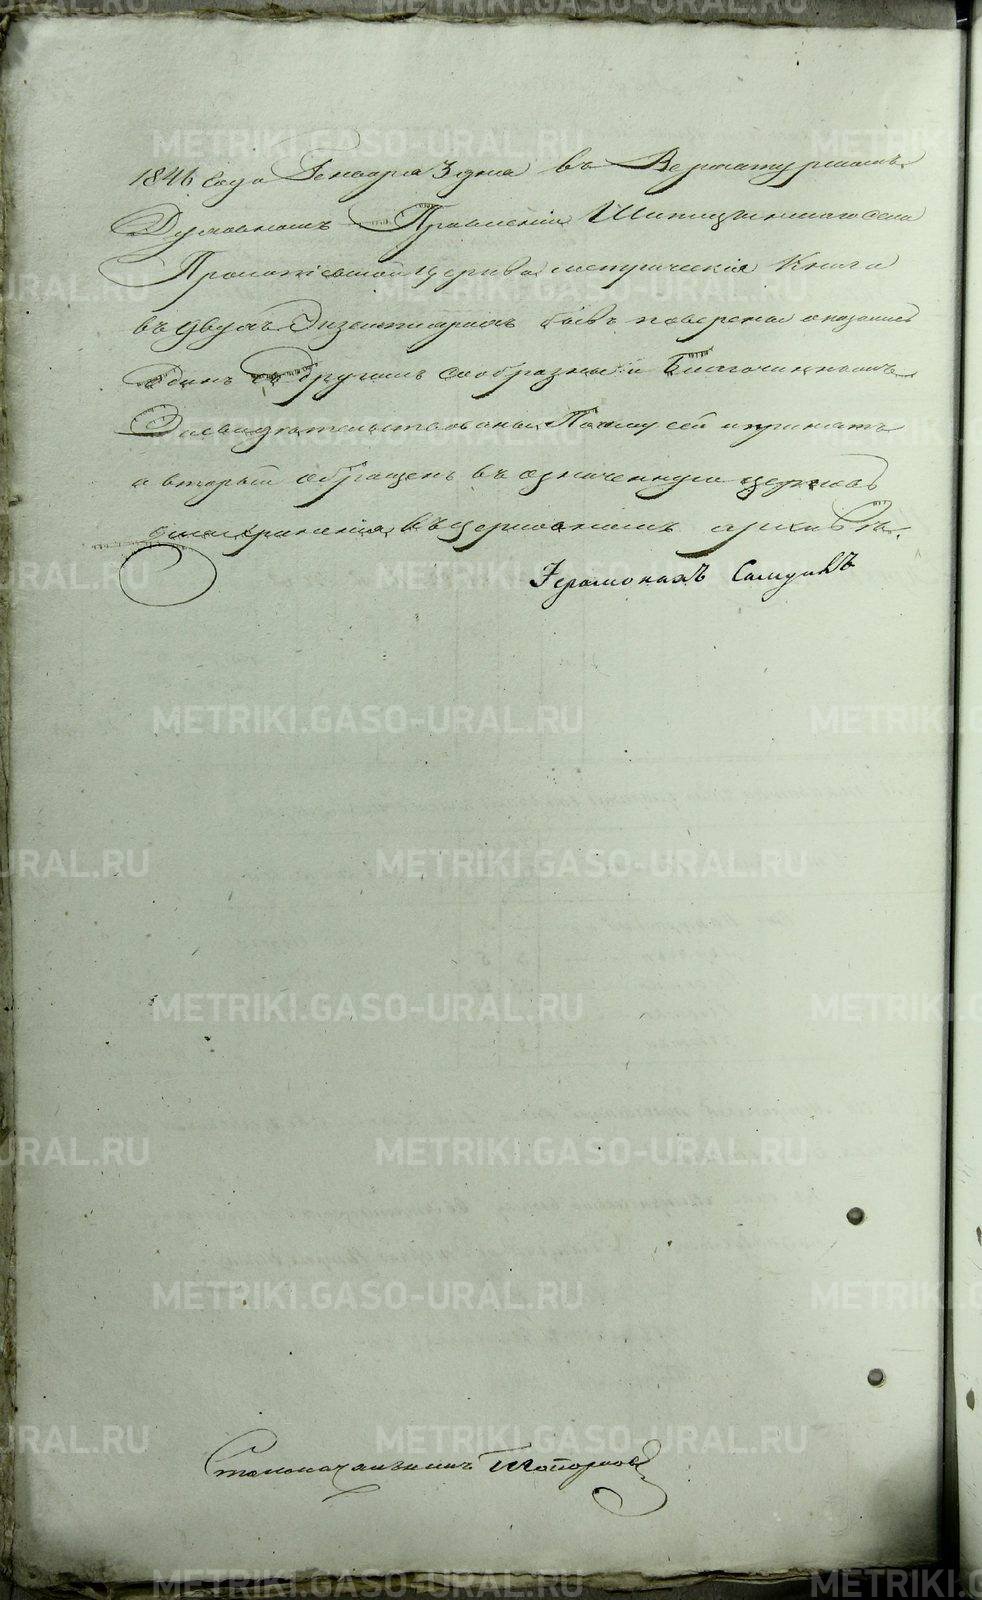 1846 года Генваря 3 дня въ Верхотурскомъ
Духовномъ Правленіи Шипицынского села
Прокопіевской церкви метрическія Книги
въ двухъ Экземплярахъ бывъ поверены оказались
Одинъ съ другимъ сообразны и Благочиннымъ
Засвидетельствованы. Почему сей и принятъ
а вторый обращенъ въ означенную церковь
для храненія въ церковномъ архиве.
Іеромонахъ Самуилъ
Столоначальникъ Топорковъ
METRIKI.GASO-URAL.RU